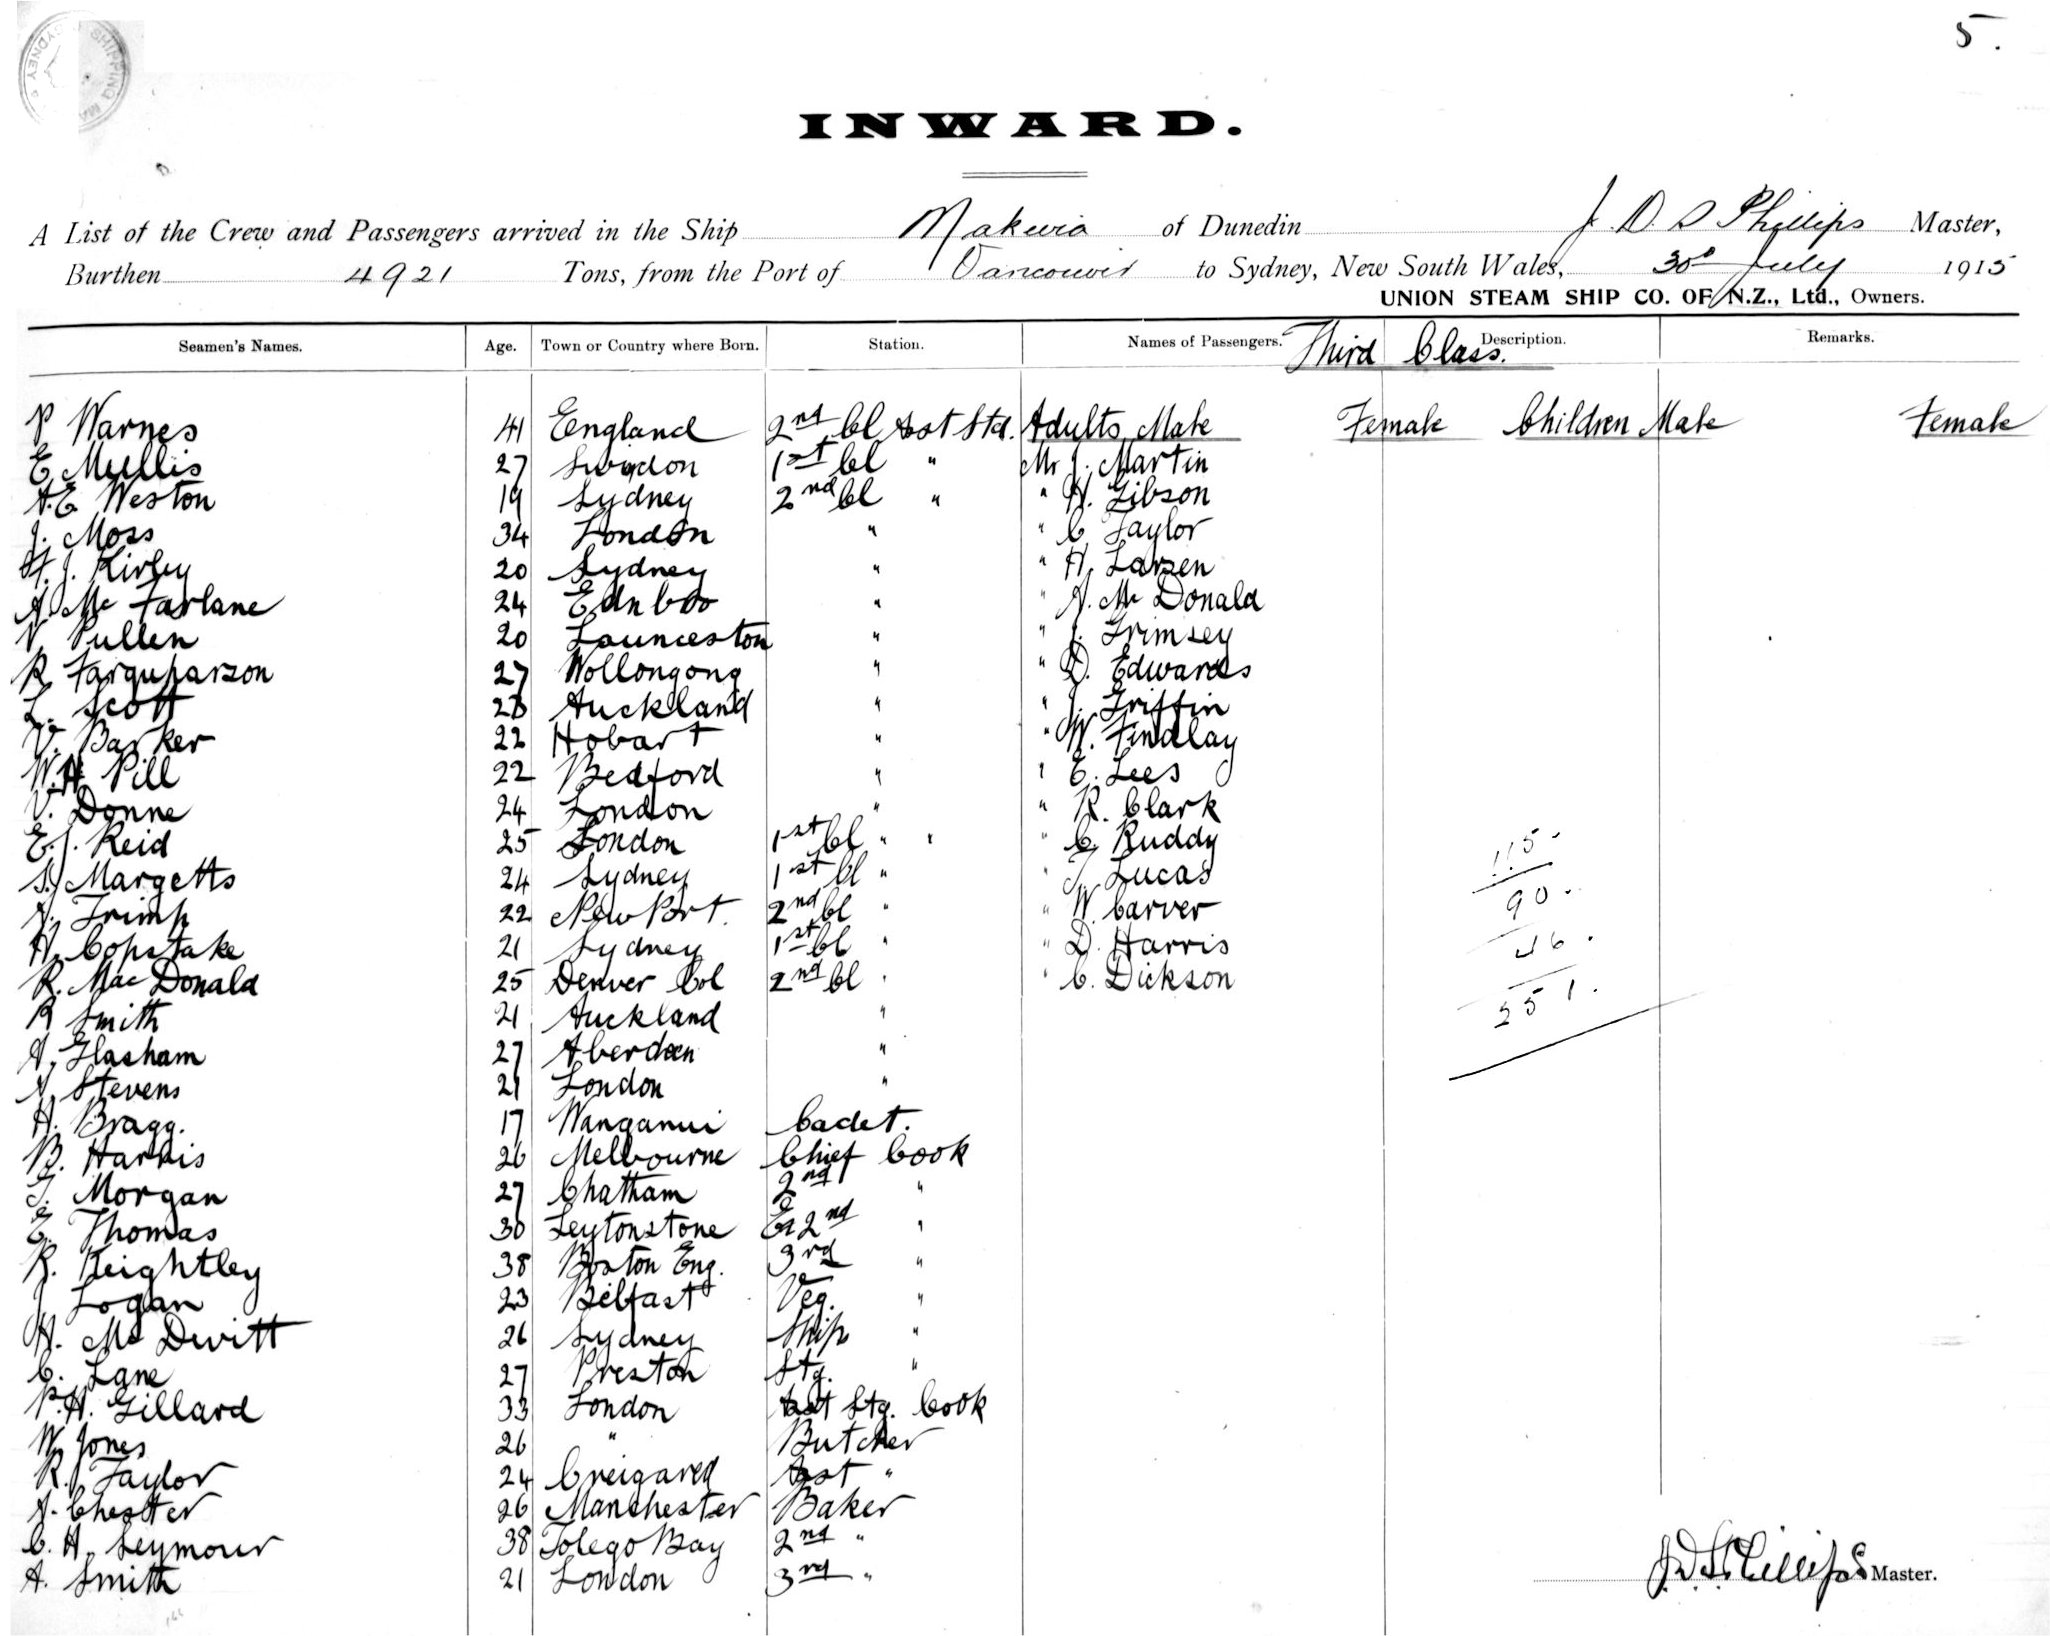 5.
INWARD.
A List of the Crew and Passengers arrived in the Ship Makura of Dunedin J. D. S Phillips Master,
Burthen 4921 Tons, from the Port of Vancouver to Sydney, New South Wales, 30th July 1915
UNION STEAM SHIP CO. OF N.Z., Ltd., Owners.
Seamen's Names. Age. Town or Country where Born. Station. Names of Passengers. Third Class. Description. Remarks.
P Warnes 41 England 2nd Cl Asst Std. Adults Male Female Children Male Female
E Mullis 27 Swindon 1st Cl " Mr J. Martin
A.E Weston 19 Sydney 2nd Cl " " H. Gibson
J. Moss 34 London " " C Taylor
H. J. Kirley 20 Sydney " " H. Larsen
A. Mc Farlane 24 Ednboo " " A. Mc Donald
V Pullen 20 Launceston " " J. Grimsey
R Farquharson 27 Wollongong " " D. Edwards
L. Scott 28 Auckland " " J. Griffin
V. Barker 22 Hobart " " W. Findlay
W.H Pill 22 Bedford " " E. Lees
V. Donne 24 London " " R. Clark
E. J. Reid 25 London 1st Cl " " " C. Ruddy 115.
S. Margetts 24 Sydney 1st Cl " " T Lucas
A. Trimp 22 New Port. 2nd Cl " " W. Carver 90.
H. Copstake 21 Sydney 1st Cl " " D. Harris 46.
R. Mac Donald 25 Denver Col 2nd Cl " " C. Dickson
R Smith 21 Auckland " 251.
A. Glasham 27 Aberdeen "
A Stevens 21 London "
H. Bragg. 17 Wanganui Cadet.
B. Harris 26 Melbourne Chief Cook
T. Morgan 27 Chatham 2nd "
E. Thomas 30 Leytonstone Ex 2nd "
R. Keightley 38 Boston Eng. 3rd "
J Logan 23 Belfast Veg. "
H. Mc Devitt 26 Sydney Ship "
C. Lane 27 Preston Stg. "
P. H. Gillard 33 London Asst Stg. Cook
W. Jones 26 " Butcher
R. Taylor 24 Asst "
A. Chester 26 Manchester Baker
C. H. Seymour 38 Tolego Bay 2nd "
A. Smith 21 London 3rd "
J. D. S. Phillips Master.